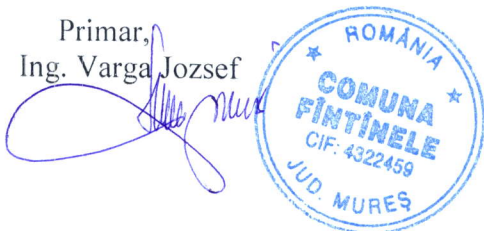 Primar,
Ing. Varga Jozsef
ROMÂNIA
COMUNA
FÎNTÎNELE
CIF: 4322459
JUD. MUREȘ